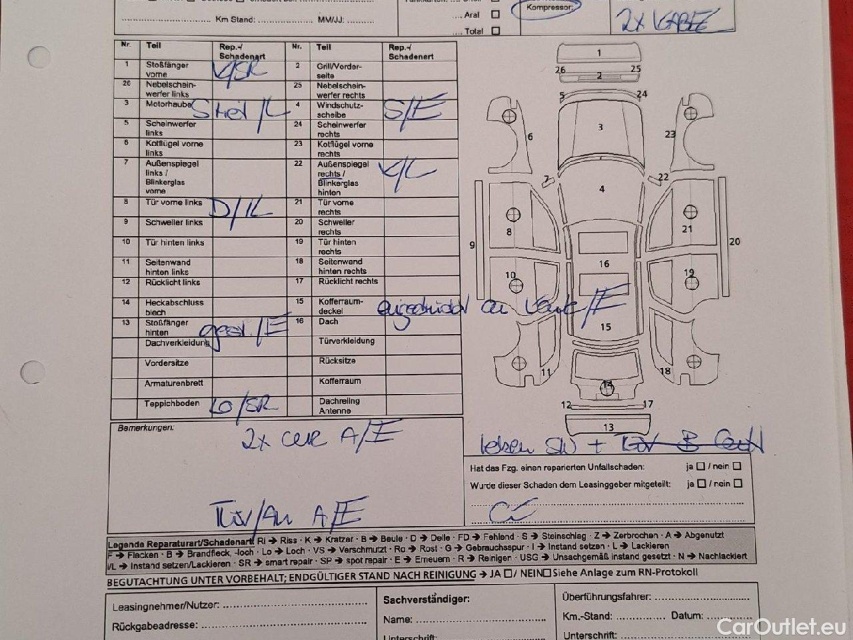 Aral
Total
Kompressor:
2x KABEL
Km Stand: MM/JJ:
Nr. Teil Rep.-/Schadenart Nr. Teil Rep.-/Schadenart
1 Stoßfänger vorne K/SR 2 Grill/Vorderseite
26 Nebelscheinwerfer links 25 Nebelscheinwerfer rechts
3 Motorhaube 4 Windschutzscheibe S/E
5 Scheinwerfer links 24 Scheinwerfer rechts
6 Kotflügel vorne links 23 Kotflügel vorne rechts
7 Außenspiegel links / Blinkerglas vorne 22 Außenspiegel rechts / Blinkerglas hinten K/L
8 Tür vorne links D/IL 21 Tür vorne rechts
9 Schweller links 20 Schweller rechts
10 Tür hinten links 19 Tür hinten rechts
11 Seitenwand hinten links 18 Seitenwand hinten rechts
12 Rücklicht links 17 Rücklicht rechts
14 Heckabschluss blech 15 Kofferraumdeckel
13 Stoßfänger hinten 16 Dach
Dachverkleidung Türverkleidung
Vordersitze Rücksitze
Armaturenbrett Kofferraum
Teppichboden LO/SR Dachreling Antenne
1
26 25
2
5 24
3
6 23
7 22
4
8 21
9 20
16
10 19
15
11 18
14
12 17
13
Bemerkungen:
A/E
A/E
Hat das Fzg. einen reparierten Unfallschaden: ja / nein
Wurde dieser Schaden dem Leasinggeber mitgeteilt: ja / nein
Legende Reparaturart/Schadenart: RI → Riss · K → Kratzer · B → Beule · D → Delle · FD → Fehlend · S → Steinschlag · Z → Zerbrochen · A → Abgenutzt
F → Flecken · B → Brandfleck, -loch · Lo → Loch · VS → Verschmutzt · Ro → Rost · G → Gebrauchsspur · I → Instand setzen · L → Lackieren
I/L → Instand setzen/Lackieren · SR → smart repair · SP → spot repair · E → Erneuern · R → Reinigen · USG → Unsachgemäß instand gesetzt · N → Nachlackiert
BEGUTACHTUNG UNTER VORBEHALT; ENDGÜLTIGER STAND NACH REINIGUNG → JA / NEIN Siehe Anlage zum RN-Protokoll
Leasingnehmer/Nutzer: Sachverständiger: Überführungsfahrer:
Rückgabeadresse: Name: Km.-Stand: Datum:
Unterschrift: Unterschrift:
CarOutlet.eu